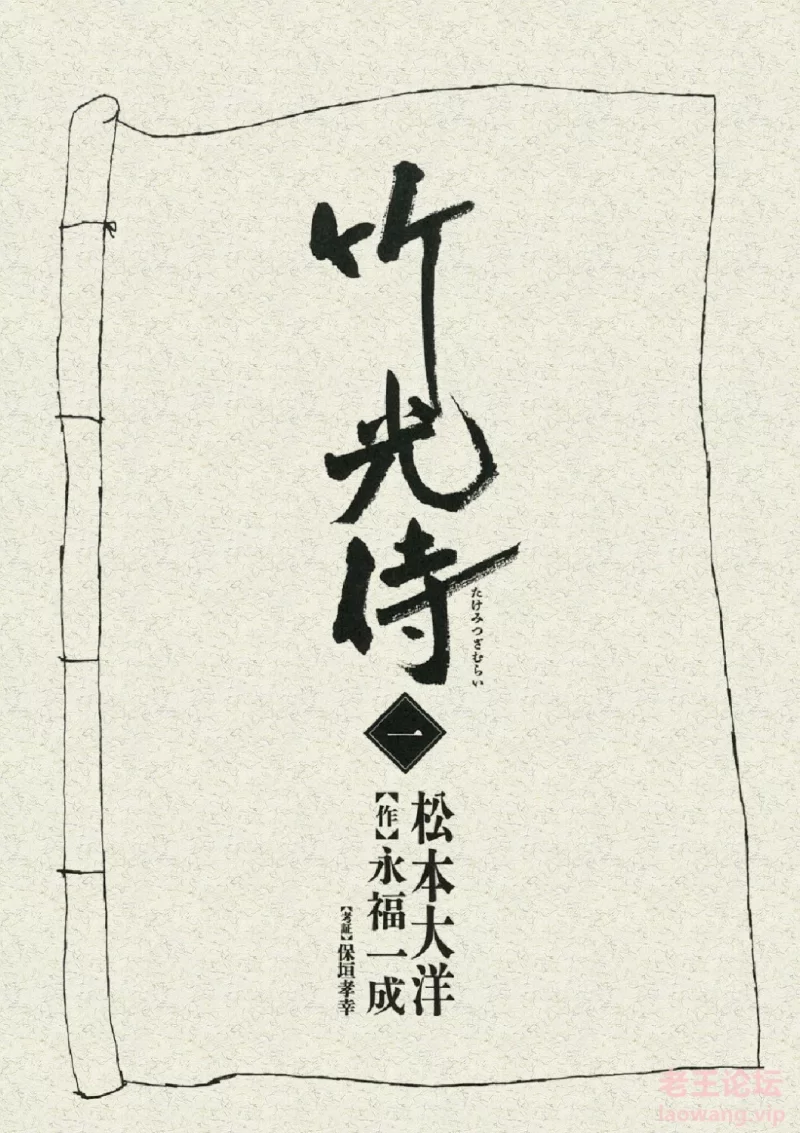 竹光侍
たけみつざむらい
一
松本大洋
【作】永福一成
【考証】保垣孝幸
老王论坛
laowang.vip